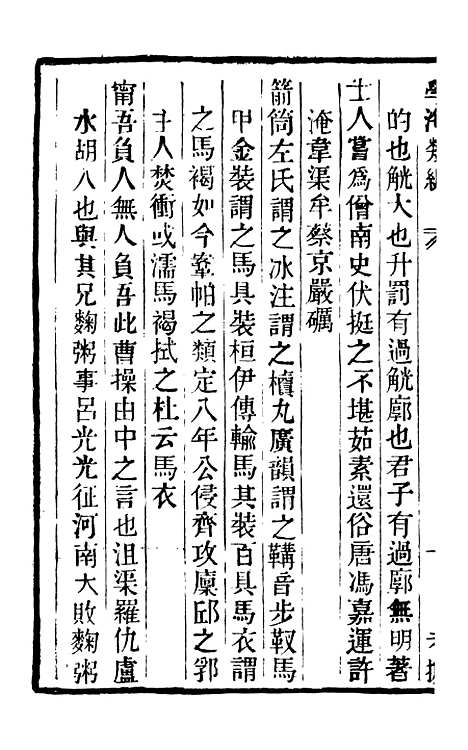 學海類編
的也觥大也升罰有過觥廓也君子有過廓無明著
士人嘗爲僧南史伏挺之不堪茹素還俗唐馮嘉運許
淹韋渠牟蔡京嚴礪
箭筒左氏謂之冰注謂之櫝丸廣韻謂之鞴音步靫馬
甲金裝謂之馬具裝桓伊傳輸馬其裝百具馬衣謂
之馬褐如今鞌帕之類定八年公侵齊攻廩邱之郛
主人焚衝或濡馬褐拭之杜云馬衣
甯吾負人無人負吾此曹操由中之言也沮渠羅仇盧
水胡人也與其兄麴粥事呂光光征河南大敗麴粥